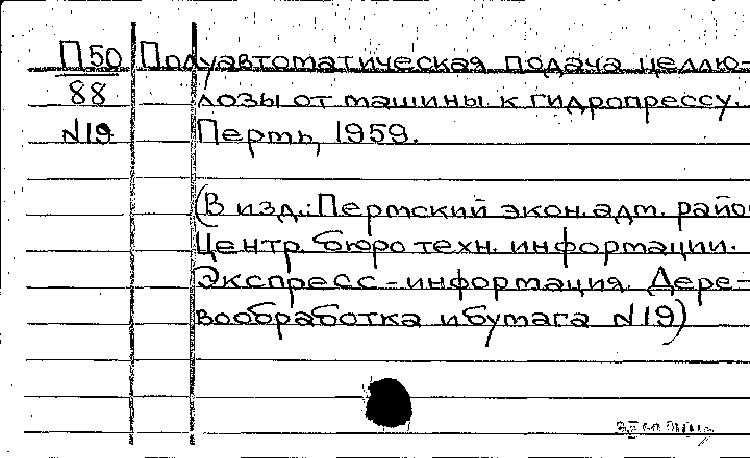 П50 Полуавтоматическая подача целлю-
88 лозы от машины к гидропрессу.
N19 Пермь, 1959.
(В изд.: Пермский экон. адм. райо
Центр. бюро техн. информации.
Экспресс-информация. Дере-
вообработка и бумага N19)